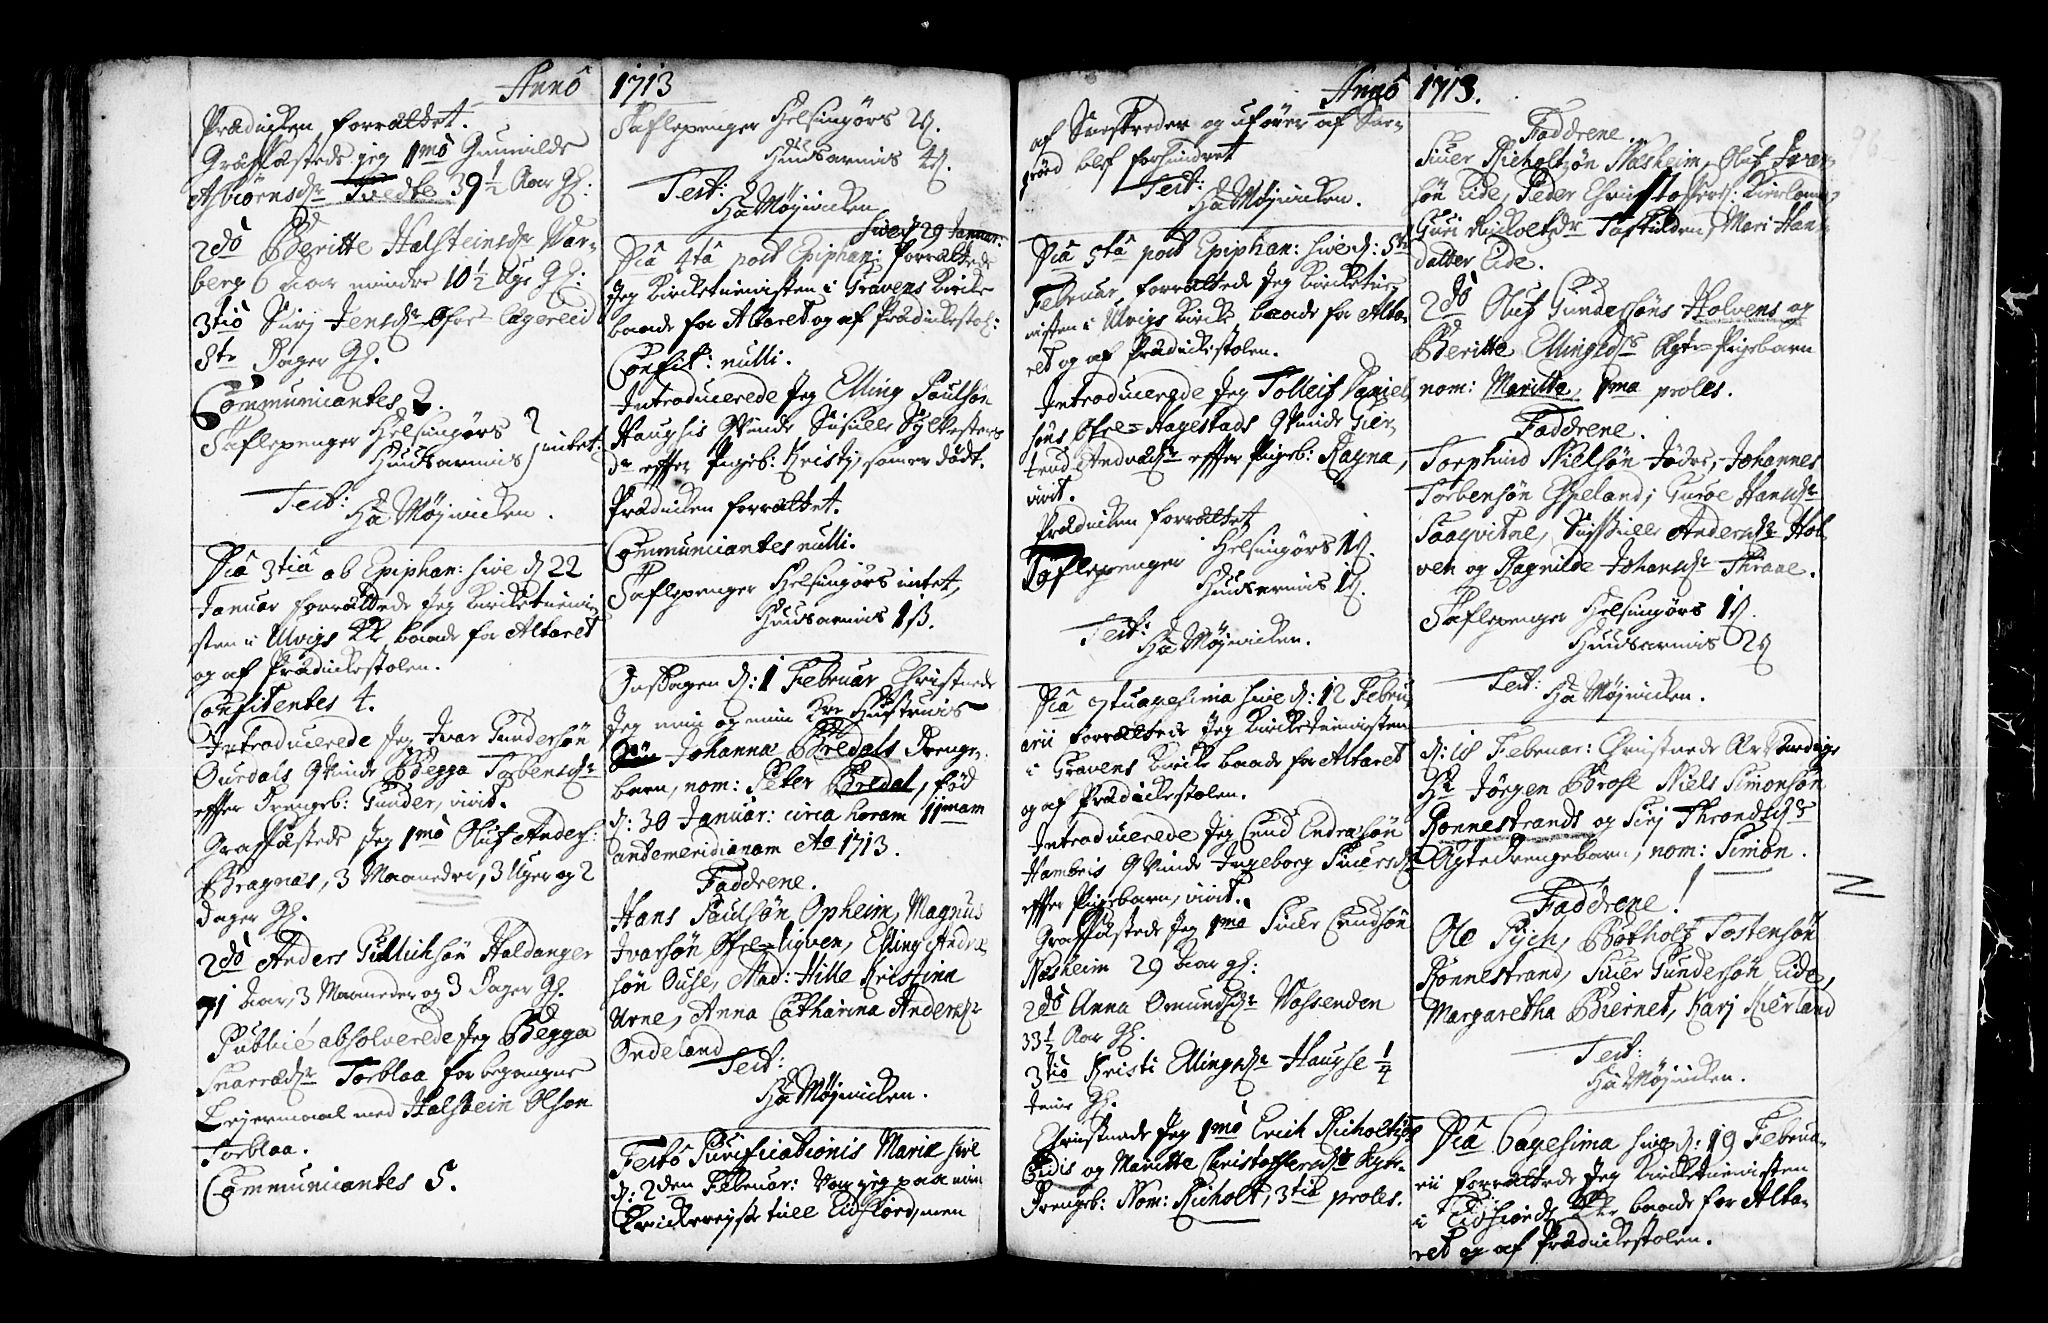 Anno 1713
Prædicken forrættet.
Graffæstede jeg 1mo Gunnilde
Asbiørnsdr Tvedte 39½ Aar Gl:
2do Beritte Halsteinsdr War-
berg 6 Aar mindre 10½ Uge Gl:
3tio Siri Jensdr Øfre Lægereid
8te Dager Gl.
Communicantes 2.
Taflepenger Helsingørs
Huusarmis intet.
Test:
Ha Møjnicken.
Dca 3tia ab Epiphan: sive d 22
Januar forrættede Jeg Kircketieni-
sten i Ulvigs KK baade for Altaret
og af Prædickestolen.
Confitentes 4.
Introducerede Jeg Ivar Gundersøn
Ouredals Qvinde Begga Torbensdr
effter Drengeb: Gunder, vivit.
Graffæstede Jeg 1mo Oluf Anders:
Bragnæs, 3 Maaneder, 3 Uger og 2
dager Gl.
2do Anders Gullichsøn Haldanger
71 Aar, 3 Maaneder og 3 Dager Gl.
Publice absolverede Jeg Begga
Snarædr Torblaa for begangne
Lejermaal med Halstein Olsøn
Torblaa.
Communicantes 5.
Taflepenger Helsingørs 2
Huusarmis 4
Test:
Ha Møjnicken
sive d 29 Januar:
Dca 4ta post Epiphan: forrættede
Jeg Kircketienisten i Gravens Kircke
baade for Altaret og af Prædickestol:
Confit: nulli.
Introducerede Jeg Elling Poulsøn
Haugsis Qvinde Sisille Sylvesters
dr effter Pigeb: Kristj, som er dødt.
Prædicken forrættet.
Communicantes nulli.
Taflepenger Helsingørs intet,
Huusarmis 1ß.
Onsdagen d: 1 Februar Christnede
Jeg min og min Kre Hustruis
Johanna Bredals Drenge-
barn, nom: Peter Bredal, fød
d: 30 Januar: circa horam 11mam
antemeridianam Ao 1713.
Faddrene.
Hans Poulsøn Opheim, Magnus
Ivarsøn Øfre-Ligven, Elling Andre
søn Ouse, Mad: Hille Kristina
Urne, Anna Catharina Andersdr
Ondeland
Test:
Ha Møjnicken.
Festo Purificationis Mariæ sive
d: 2den Februar: Var jeg paa min
Kirckerejse till Eidfiord, men
Anno 1713.
af Sneskreder og uføer af Snee-
blef forhindret
Test:
Ha Møjnicken.
Dca 5ta post Epiphan: sive d: 5te
Februar forrættede Jeg Kircketie-
nisten i Ulvigs Kircke baade for Alta-
ret og af Prædickestolen.
Introducerede Jeg Tolleif Daniel
søns Øfre-Hagestads Qvinde Gier-
trud Andredr effter Pigeb: Ragna,
vivit.
Prædicken forrættet
Taflepenger Helsingørs 1
Huusarmis 1
Test:
Ha Møjnicken.
Dca 7tuagesima sive d: 12 Febru
arii forrættede Jeg Kircketienisten
i Gravens Kircke baade for Altaret
og af Prædickestolen.
Introducerede Jeg Cnud Endresøn
Hambris Qvinde Ingeborg Siursdr
effter Pigebarn, vivit.
Graffæstede Jeg 1mo Siur Cnudsøn
Næsheim 29 Aar gl:
2do Anna Omundsdr Vossenden
33½ Aar Gl.
3tio Kristi Ellingsdr Haugse ¼
Gl.
Christnede Jeg 1mo Erich Richoltsøn
Eidis og Maritte Christophersdr Ægte-
Drengeb: Nom: Richolt, 3tia proles.
Faddrene.
Siuer Richoltsøn Næsheim, Oluf
søn Eide, Peder Christoffers: Kierland
Guri Richoltsdr Tostulden, Mari Hans
datter Eide.
2do Oluf Gundersøns Holvens og
Beritte Ellingsdrs Ægte-Pigebarn
nom: Maritte, 1ma proles.
Faddrene.
Torphind Nielsøn Jodre, Johannes
Torbensøn Espeland, Guroe Hansdr
Saaqvitne, Sissille Andersdr Hol-
ven og Ragnilde Johansdr Thraae.
Taflepenger Helsingørs 1
Huusarmis 2
Test:
Ha Møjnicken.
d: 15 Februar: Christnede Ær Værdige
Hr Jørgen Brose Niels Simonsøn
Rønnestrands og Siri Throndsdr
Ægte Drengebarn, nom: Simon.
Faddrene!
Ole Pych, Botholf Tostensøn
Rønnestrand, Siuer Gundersøn Eide,
Margaretha Biernet, Karj Kierland
Test:
Ha Møjnicken.
Dca 6agesima sive d: 19 Februa-
rii forrættede Jeg Kircketienisten
i Eidfiords KK baade for Alta-
ret og af Prædickestolen.